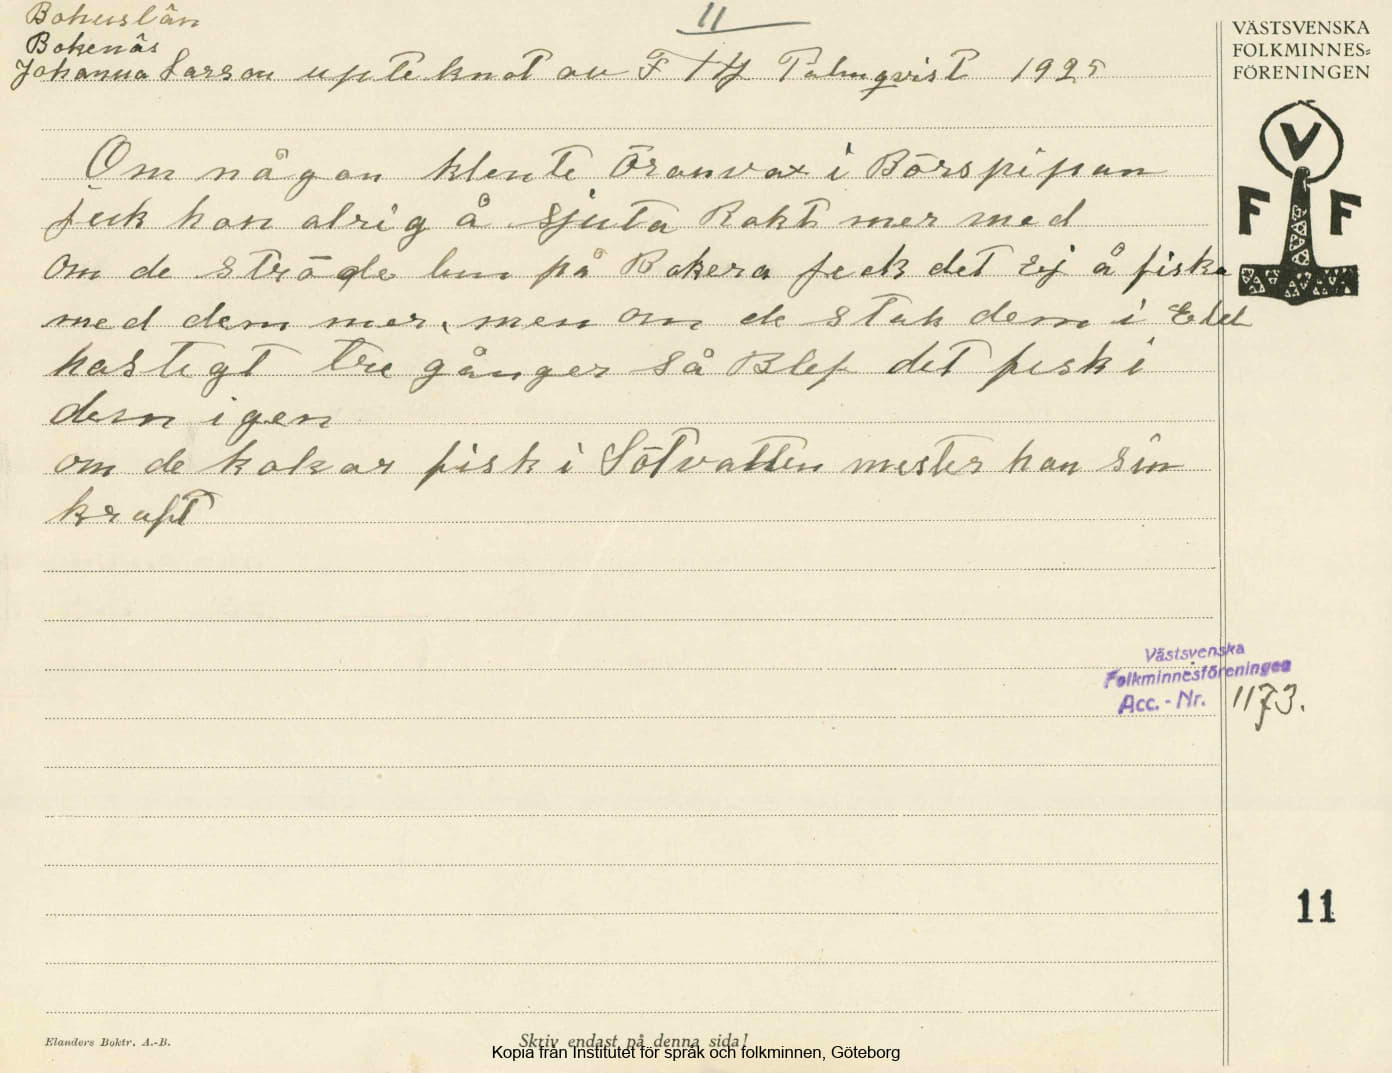 Bohuslän
Bokenäs
Johanna Larson upteknat av F Hj Palmqvist 1925
11
VÄSTSVENSKA
FOLKMINNES=
FÖRENINGEN
V
F F
Om någon klente Öronvax i Börspipan
feck han alrig å sjuta Rakt mer med
om de strögde lun på Bakera feck det Ej å fiska
med dem mer, men om de stak dem i Eld
hastigt tre gånger så Blef det fisk i
dem igen
om de kokar fisk i Sötvatten mister han sin
kraft
Västsvenska
Folkminnesföreningen
Acc.-Nr. 1173.
11
Elanders Boktr. A.-B.
Skriv endast på denna sida!
Kopia från Institutet för språk och folkminnen, Göteborg